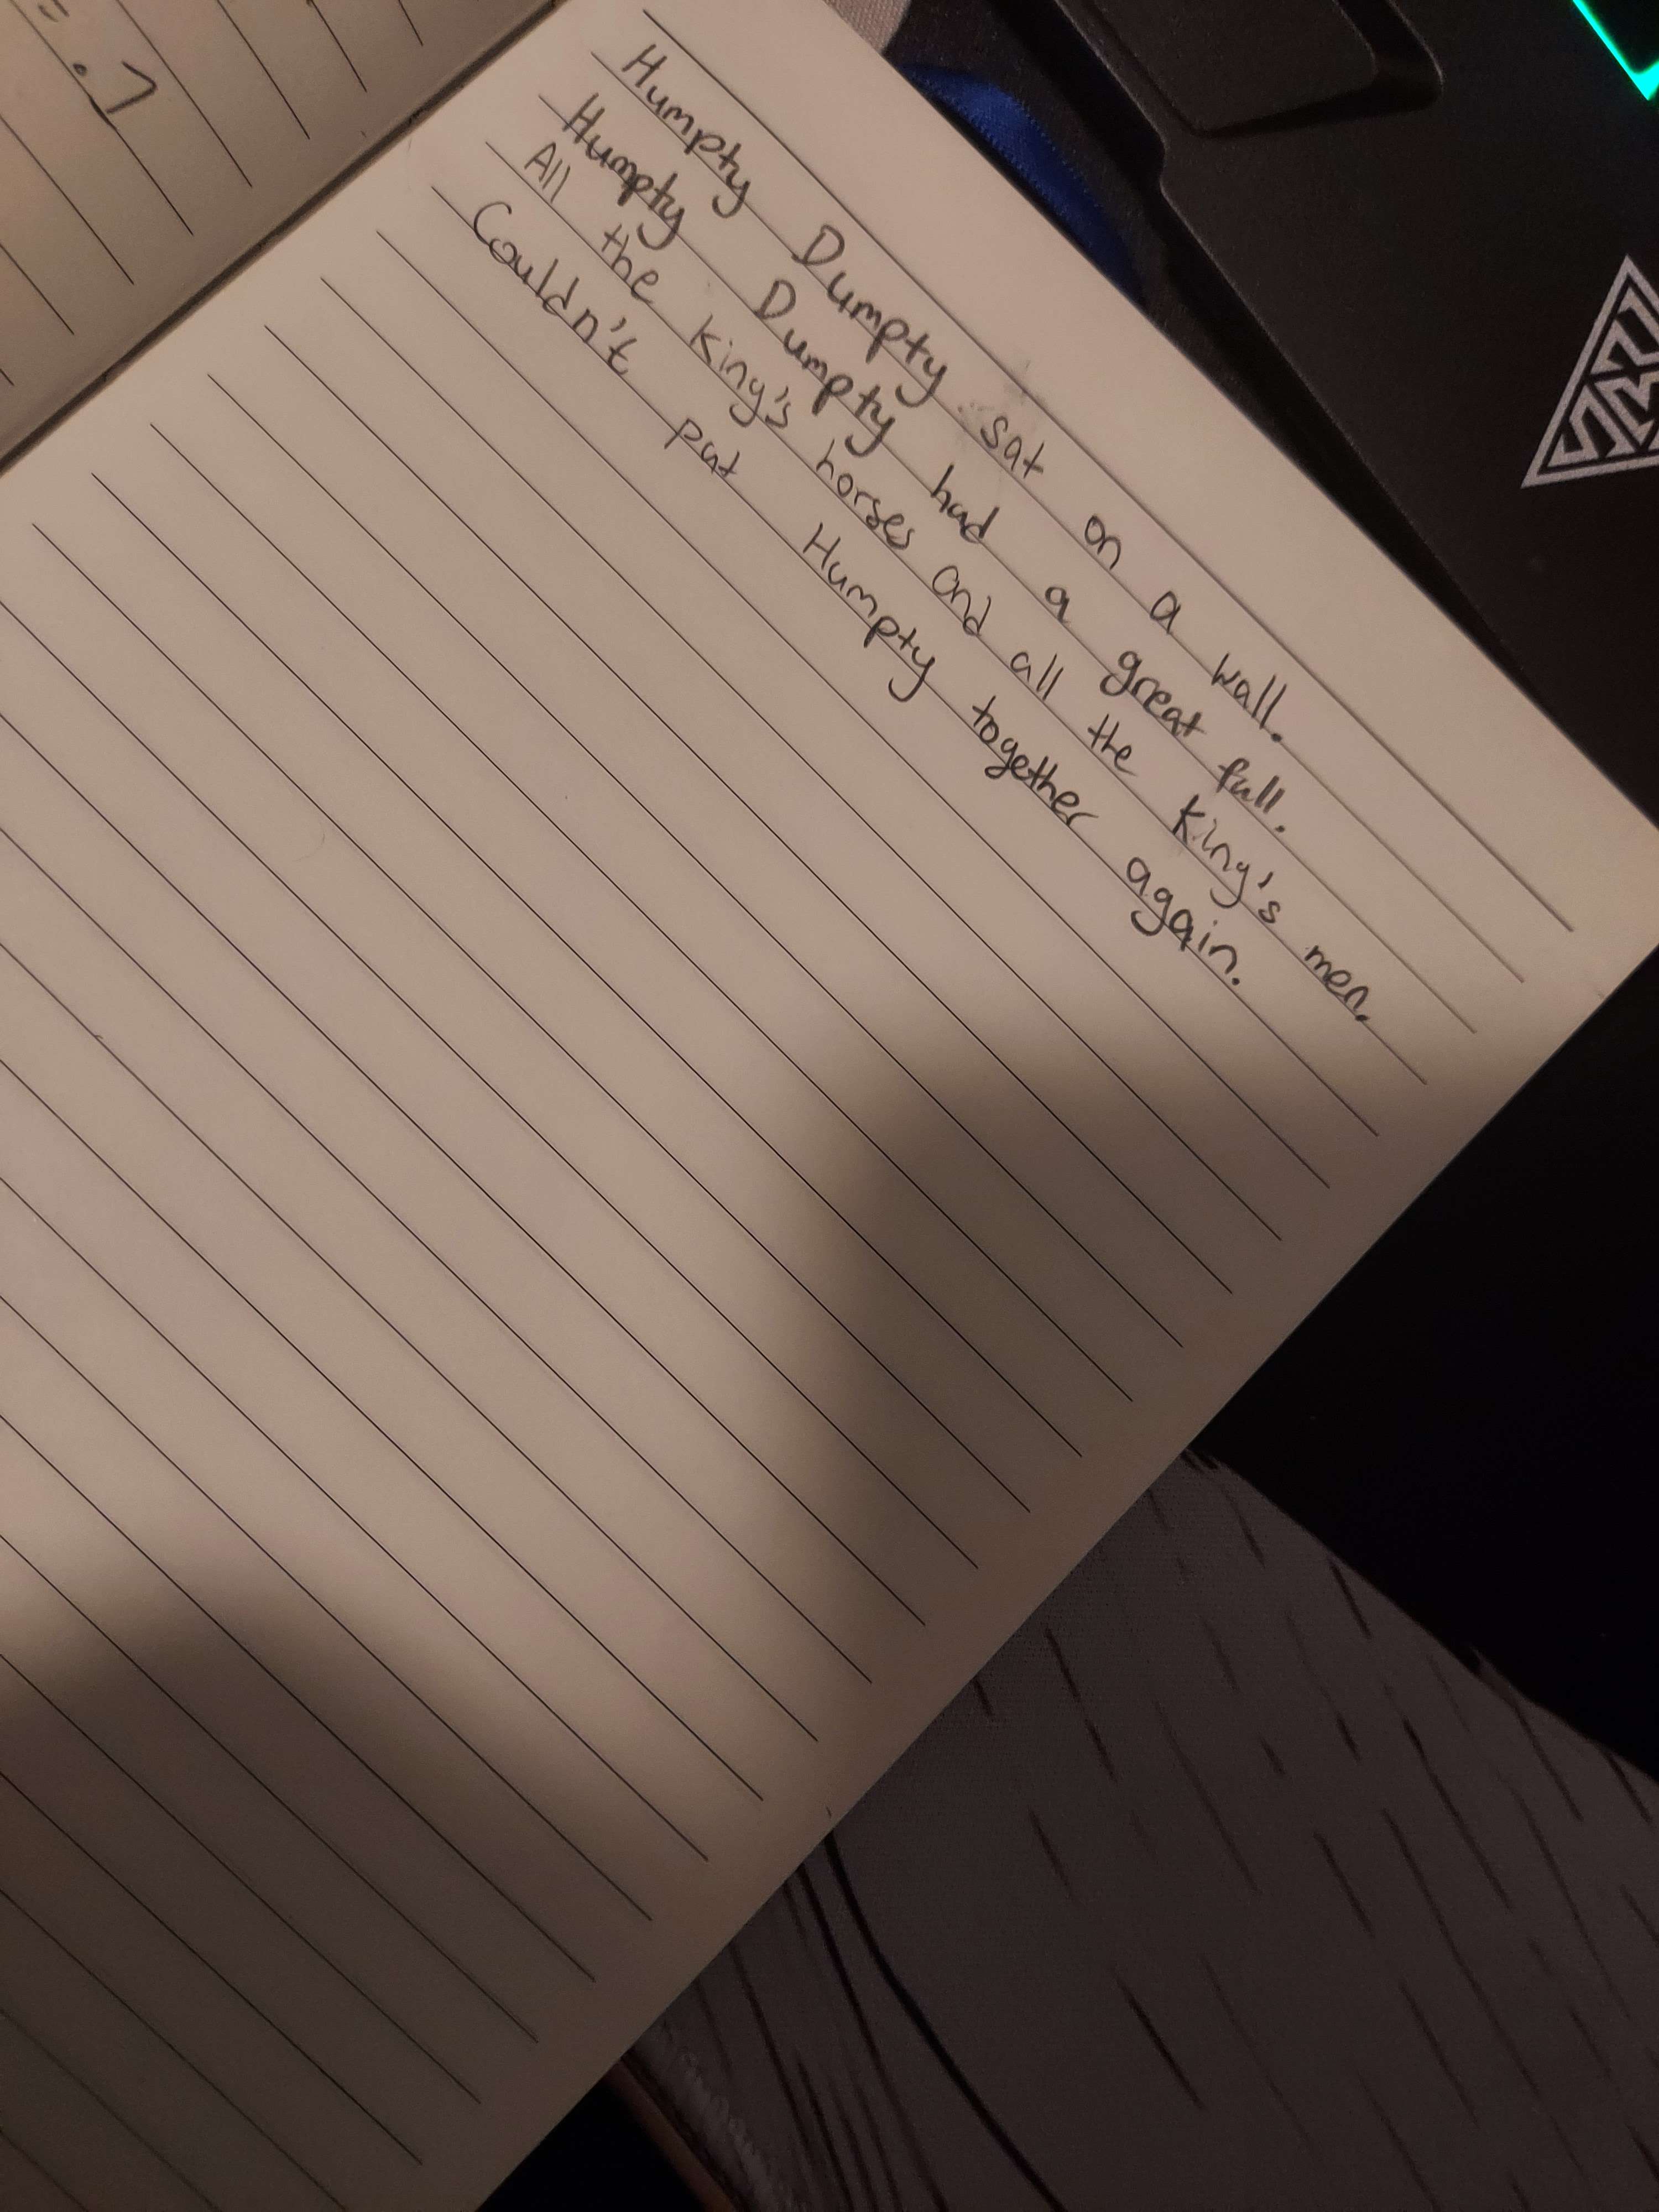 Humpty Dumpty sat on a wall.
Humpty Dumpty had a great fall.
All the King's horses and all the King's men.
Couldn't put Humpty together again.
= .7